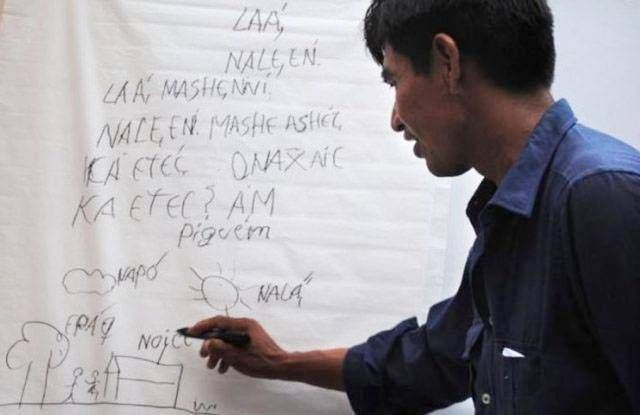 LAÁ,
NALE,EN.
LAÁ, MASHE,NNÍ,
NALE,EN. MASHE ASHEÉ,
KÁ ETEC, QNAXAIC
KA ETEC? AM
piguem
NAPÓ
NALA,
EPÁQ